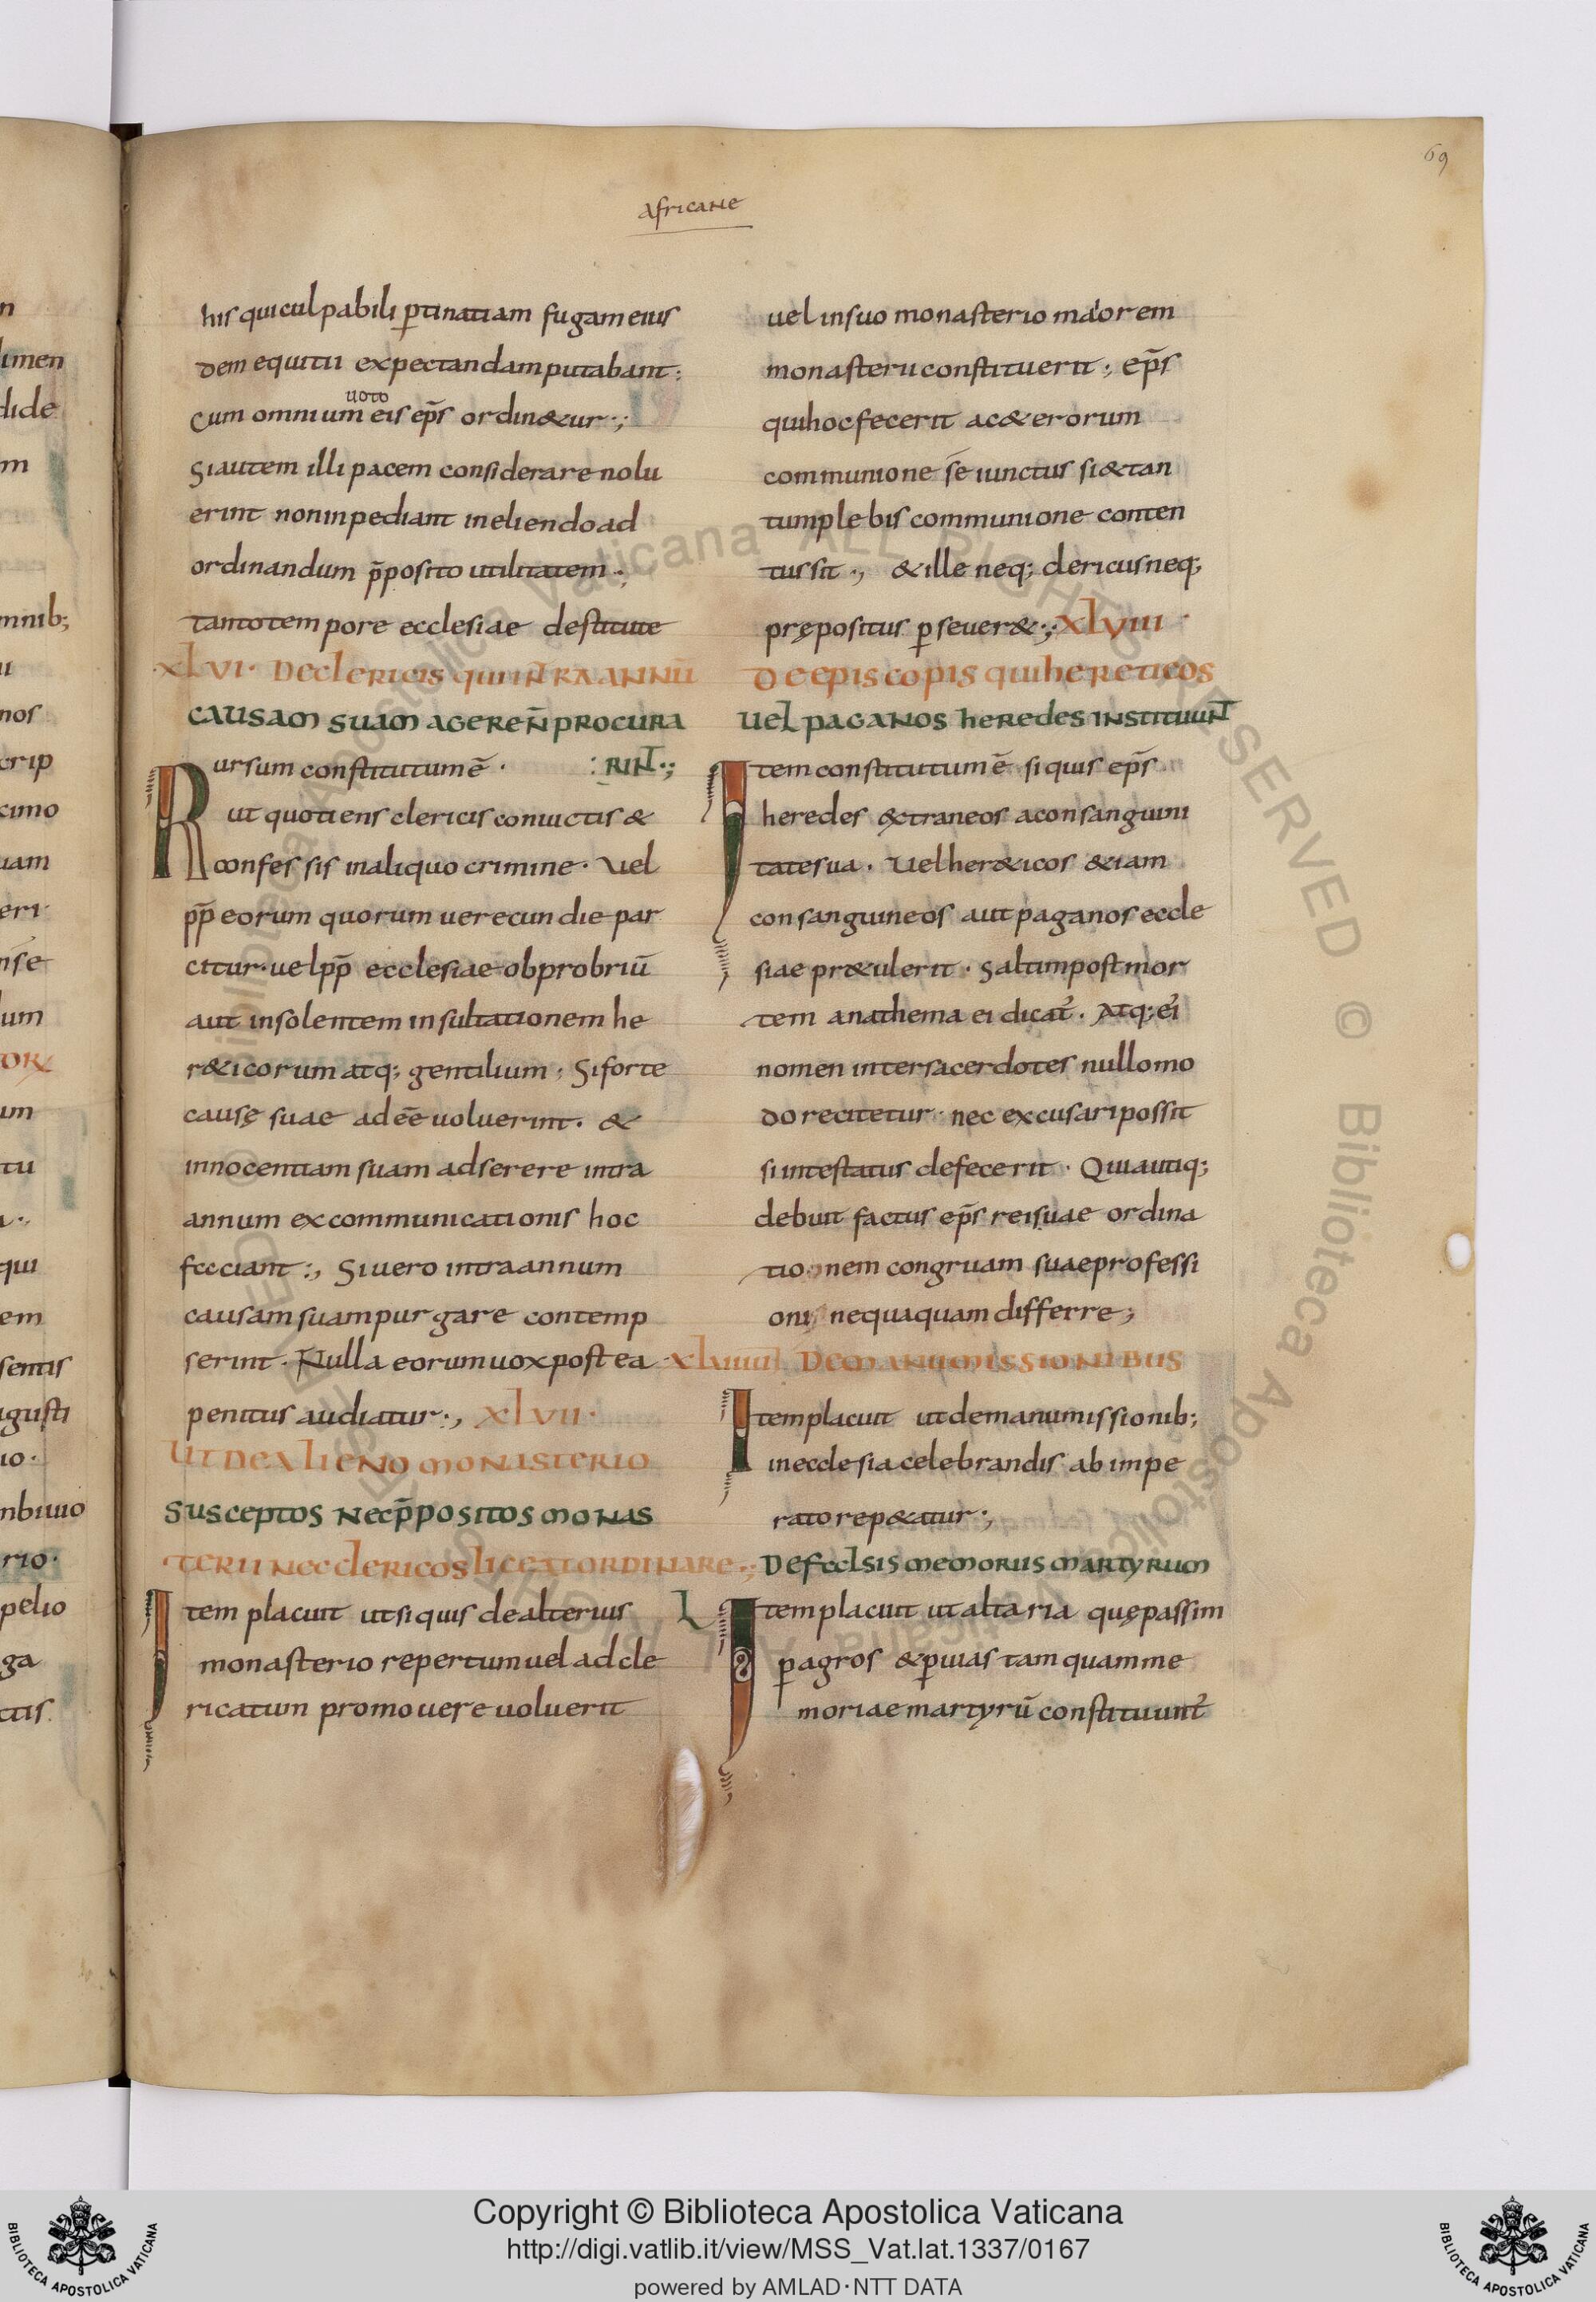 69
africane
his qui culpabili ꝑtinatiam fugam eius
dem equitii expectandam putabant:
uoto
Cum omnium eis ep̄s ordin&ur·;
Si autem illi pacem considerare nolu
erint non inpediant in eliendo ad
ordinandum p̄posito utilitatem·;
tanto tempore ecclesiae destitute
XLVI· De clericis qui intra annū
causam suam ageren̄ procura
:rint·;
Rursum constitutum ē·
ut quotiens clericis conuictis &
confessis in aliquo crimine· Vel
pp̄ eorum quorum uerecundie par
citur· uel pp̄ ecclesiae obprobriū
aut insolentem insultationem he
r&icorum atq; gentilium; Si forte
causę suae adēē uoluerint· &
innocentiam suam adserere intra
annum excommunicationis hoc
facciant:, Si uero intra annum
causam suam purgare contemp
serint· Nulla eorum uox postea
penitus audiatur·, XLVII·
Ut de alieno monasterio
susceptos nec p̄positos monas
terii nec clericos liceat ordinare·;
Item placuit ut si quis de alterius
monasterio repertum uel ad cle
ricatum promouere uoluerit
uel in suo monasterio maiorem
monasterii constituerit·, ep̄s
qui hoc fecerit a c&erorum
communione seiunctus si& tan
tum plebis communione conten
tus sit·, & ille neq; clericus neq;
prępositus ꝑseuer&·; XLVIII·
De episcopis qui hereticos
uel paganos heredes instituunt
Item constitutum ē si quis ep̄s
heredes &traneos a consanguini
tate sua· Vel her&icos &iam
consanguineos aut paganos eccle
siae pr&ulerit· Saltim post mor
tem anathema ei dicat̄· Atq; ei
nomen inter sacerdotes nullo mo
do recitetur· nec excusari possit
si intestatus defecerit· Qui autiq;
debuit factus ep̄s rei suae ordina
tionem congruam suae professi
oni nequaquam differre;
XLVIIII De manumissionibus
Item placuit ut de manumissionib;
in ecclesia celebrandis ab impe
rato rep&atur·;
De feclsis memoriis martyrum
L Item placuit ut altaria quę passim
ꝑ agros & ꝑ uias tamquam me
moriae martyrū constituunt̄
Copyright © Biblioteca Apostolica Vaticana
http://digi.vatlib.it/view/MSS_Vat.lat.1337/0167
powered by AMLAD·NTT DATA